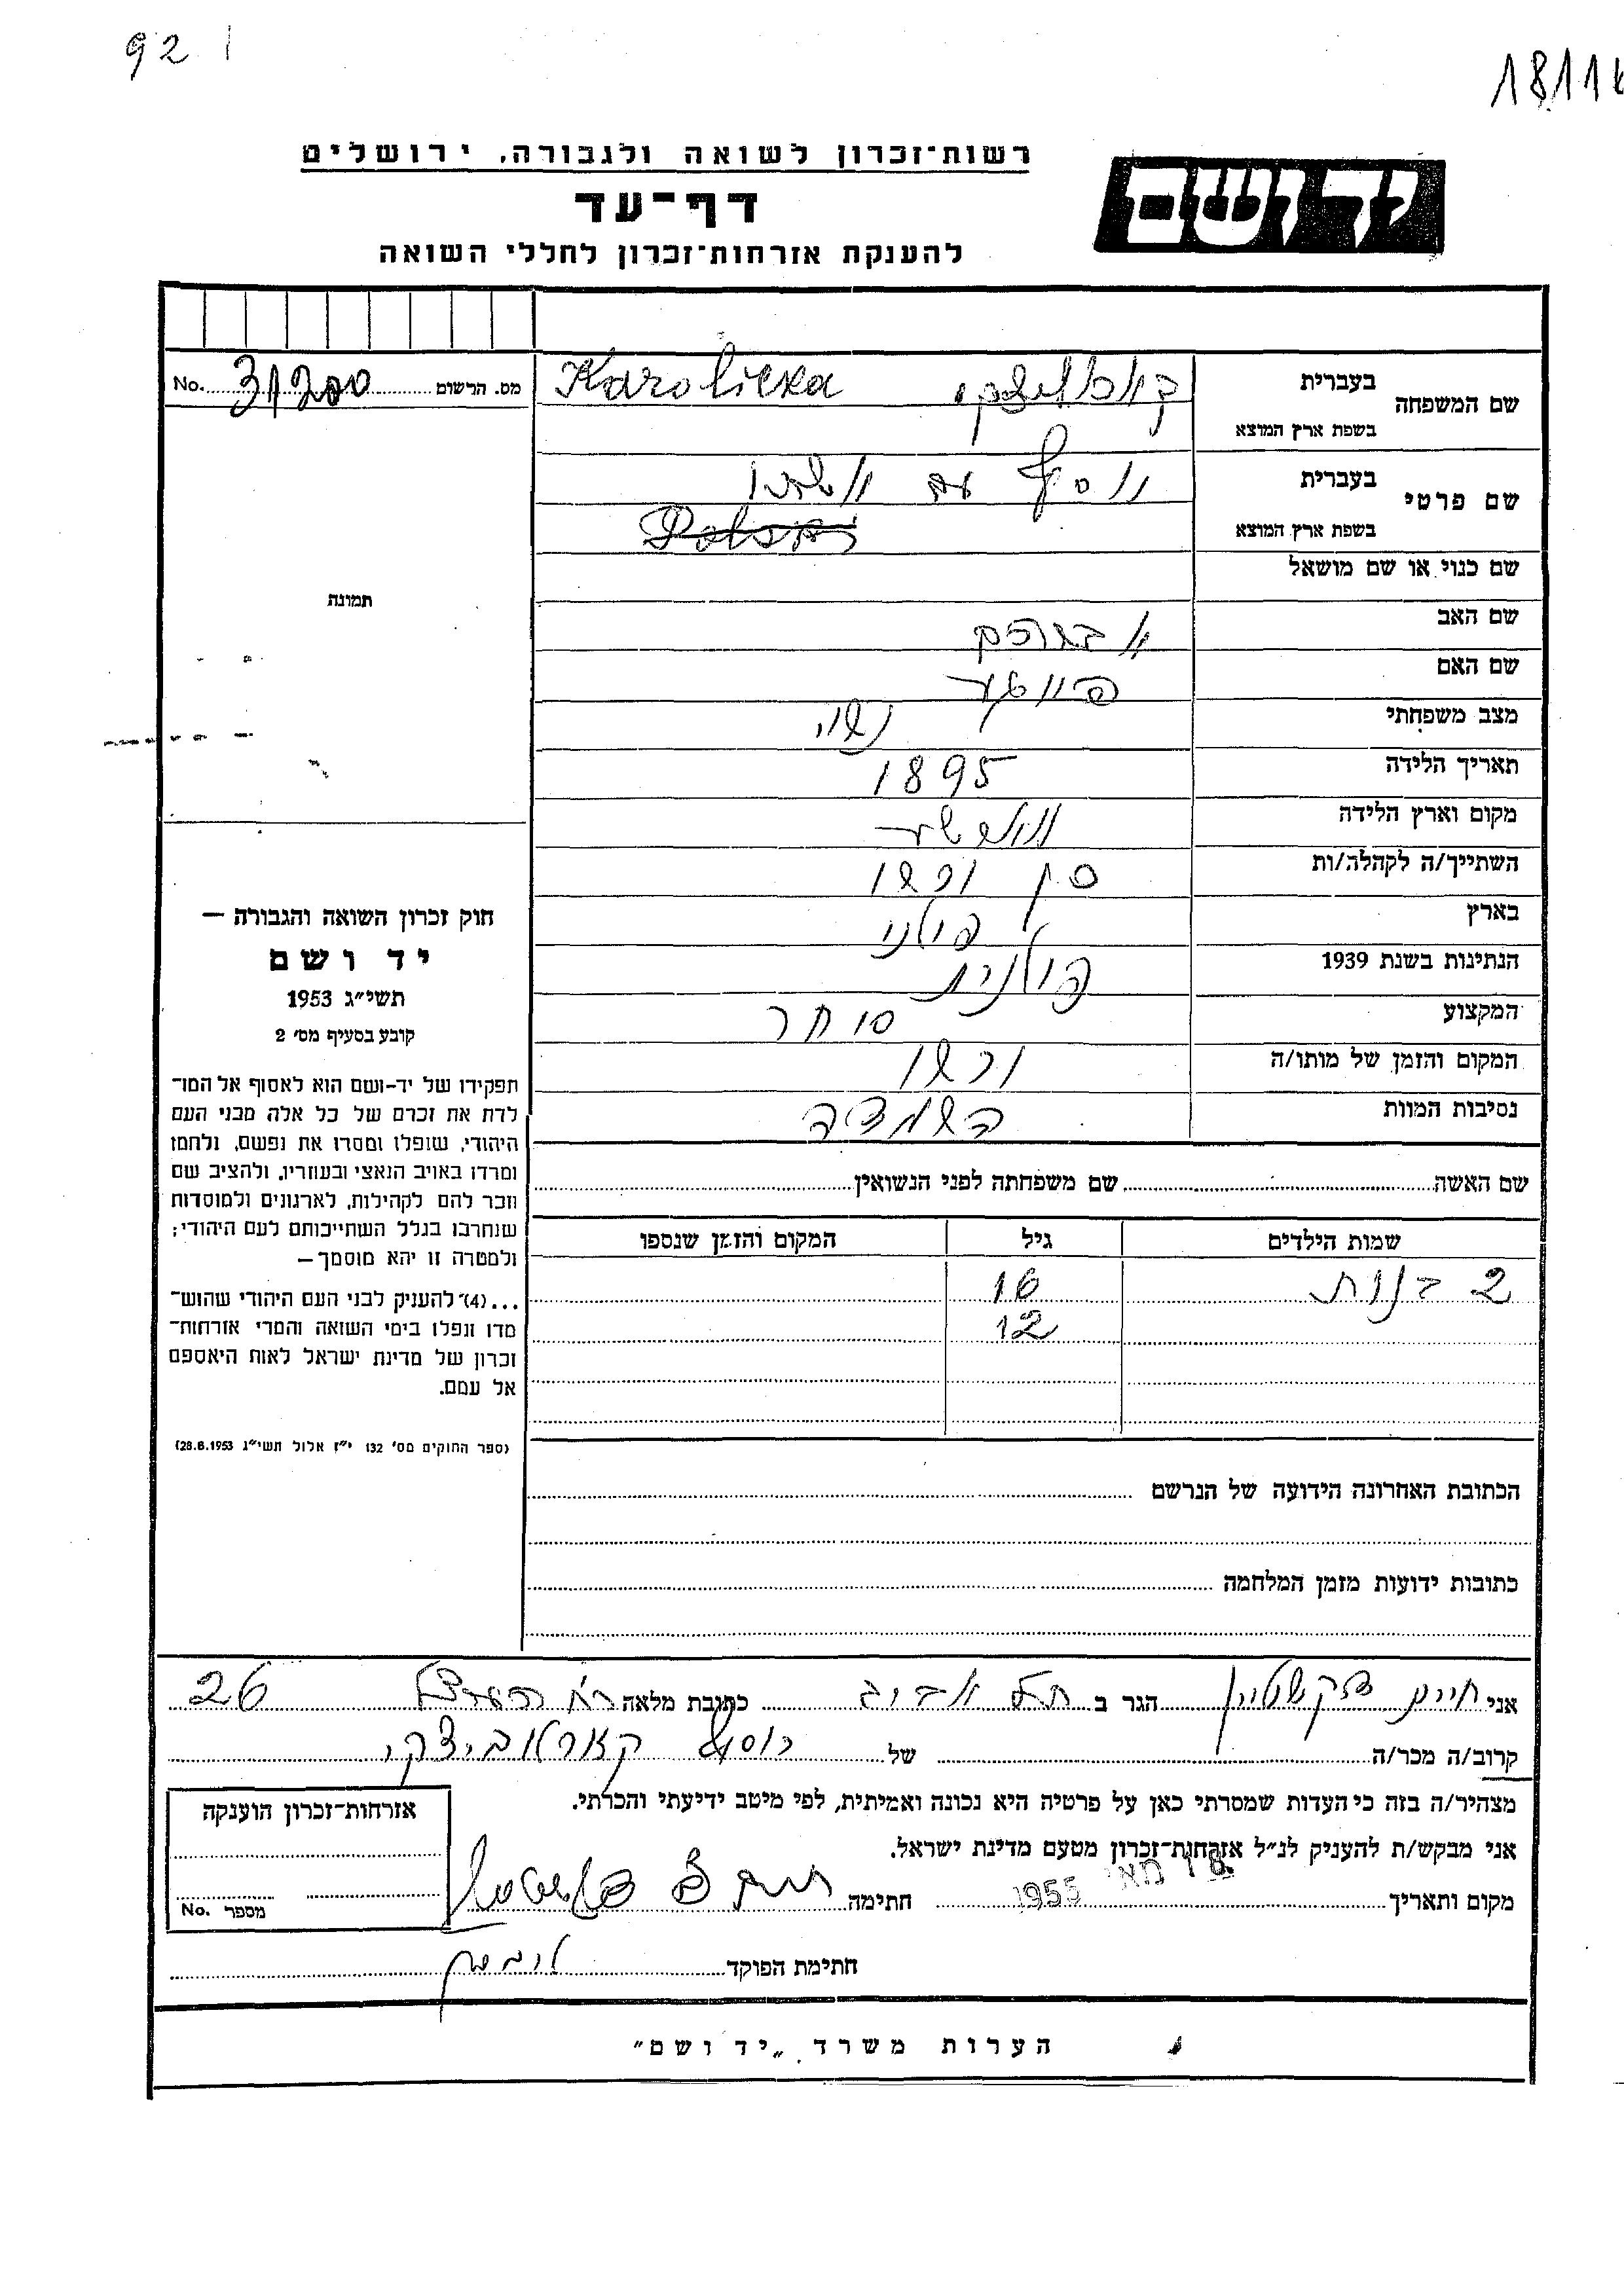 92
1811
רשות־זכרון לשואה ולגבורה, ירושלים
יד ושם
דף־עד
להענקת אזרחות־זכרון לחללי השואה
מס. הרשום 31200 No.
שם המשפחה
בעברית
בשפת ארץ המוצא
Karolicka
שם פרטי
בעברית
יוסף עם
בשפת ארץ המוצא
שם כנוי או שם מושאל
שם האב
אברהם
שם האם
מצב משפחתי נשוי
תאריך הלידה 1895
מקום וארץ הלידה
השתייך/ה לקהלה/ות ורשו
בארץ פולני
הנתינות בשנת 1939 פולנית
המקצוע סוחר
המקום והזמן של מותו/ה ורשו
נסיבות המוות השמדה
שם האשה שם משפחתה לפני הנשואין
שמות הילדים גיל המקום והזמן שנספו
2 בנות 16
12
הכתובת האחרונה הידועה של הנרשם
כתובות ידועות מזמן המלחמה
תמונה
חוק זכרון השואה והגבורה —
יד ושם
תשי״ג 1953
קובע בסעיף מס׳ 2
תפקידו של יד-ושם הוא לאסוף אל המו־
לדת את זכרם של כל אלה מבני העם
היהודי, שנפלו ומסרו את נפשם, ולחמו
ומרדו באויב הנאצי ובעוזריו, ולהציב שם
וזכר להם לקהילות, לארגונים ולמוסדות
שנחרבו בגלל השתייכותם לעם היהודי;
ולמטרה זו יהא מוסמך —
...(4)״ להעניק לבני העם היהודי שהוש־
מדו ונפלו בימי השואה והמרי אזרחות־
זכרון של מדינת ישראל לאות היאספם
אל עמם.
(ספר החוקים מס׳ 132 י״ז אלול תשי״ג 28.8.1953)
אני חיים הגר ב תל אביב כתובת מלאה 26
קרוב/ה מכר/ה של יוסף קאראליצקי
מצהיר/ה בזה כי העדות שמסרתי כאן על פרטיה היא נכונה ואמיתית, לפי מיטב ידיעתי והכרתי.
אני מבקש/ת להעניק לנ״ל אזרחות־זכרון מטעם מדינת ישראל.
מקום ותאריך מאי 1955 חתימה
חתימת הפוקד
אזרחות־זכרון הוענקה
מספר No.
הערות משרד „יד ושם״